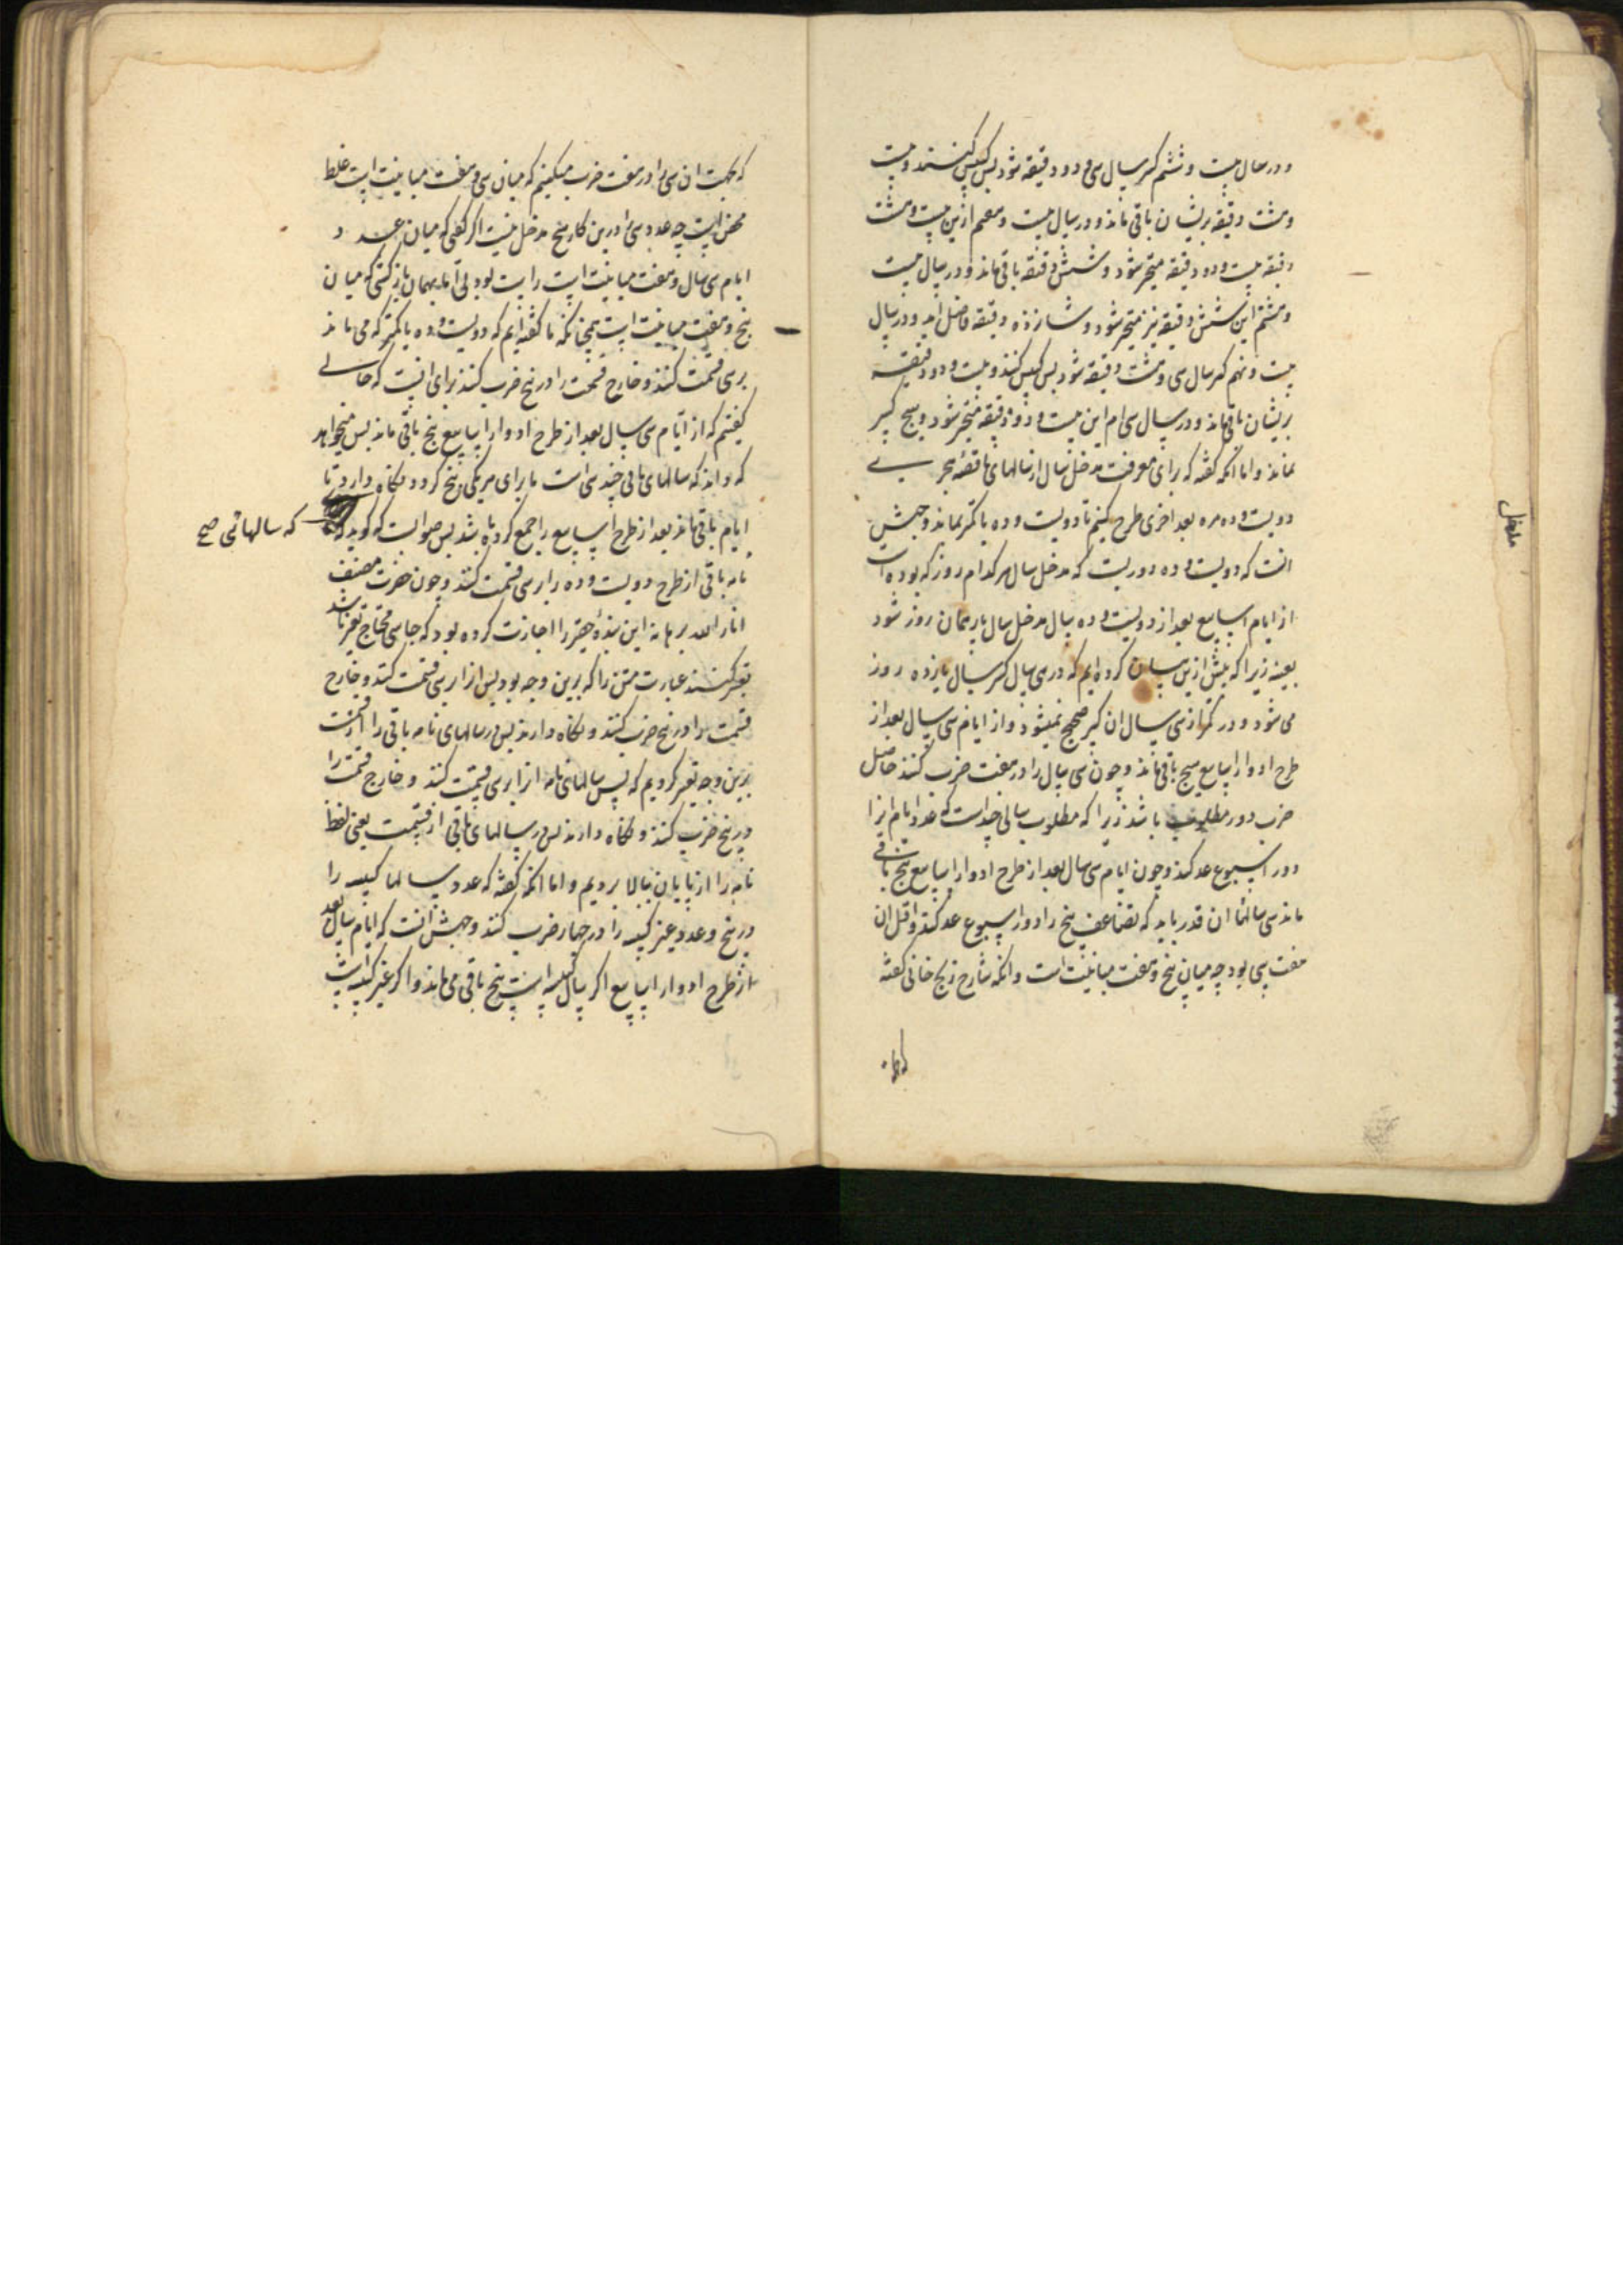 و در سال بیست و ششم کسر سال سی و دو دقیقه شود پس کبس کنند و بیست
و هشت دقیقه بریشان باقی ماند و در سال بیست و هفتم ازین بیست و هشت
دقیقه بیست و دو دقیقه منجبر شود و شش دقیقه باقی ماند و در سال بیست
و هشتم این شش دقیقه نیز منجبر شود و شانزده دقیقه فاضل آید و در سال
بیست و نهم کسر سال سی و هشت دقیقه شود پس کبس کنند و بیست و دو دقیقه
بریشان باقی ماند و در سال سی ام این بیست و دو دقیقه منجبر شود و هیچ کسر
نماند و اما آنکه گفته که برای معرفت مدخل سال از سالهای ناقصه هجری
دویست و ده مره بعد اخری طرح کنیم تا دویست و ده یا کمتر بماند وجهش
آنست که دویست و ده دوریست که مدخل سال هر کدام روز که بوده است
از ایام اسابیع بعد از دویست و ده سال مدخل سال باز همان روز شود
بعینه زیرا که پیش ازین بیان کرده ایم که در سی سال کسر سال یازده روز
می شود و در کمتر از سی سال ان کسر صحیح نمیشود و از ایام سی سال بعد از
طرح ادوار اسابیع پنج باقی ماند و چون سی سال را در هفت ضرب کنند حاصل
ضرب دور مطلوب باشد زیرا که مطلوب سالی چند است که عدد ایام انرا
دور اسبوع عد کند و چون ایام سی سال بعد از طرح ادوار اسابیع پنج باقی
ماند سی سالها ان قدر باید که تضاعف پنج را دور اسبوع عد کند و اقل ان
هفت سی بود چه میان پنج و هفت مباینت است و انکه شارح زیج خانی گفته
مدخل
که بجهت ان سی را در هفت ضرب میکنیم که میان سی و هفت مباینت است غلط
محض است چه عدد سی را درین کار هیچ مدخل نیست اگر گفتی که میان عدد
ایام سی سال و هفت مباینت است راست بودی اما بهمان بازگشتی که میان
پنج و هفت مباینت است همچنانکه ما گفته ایم که دویست و ده یا کمتر که می ماند
بر سی قسمت کنند و خارج قسمت را در پنج ضرب کنند برای انست که حالی
گفتیم که از ایام سی سال بعد از طرح ادوار اسابیع پنج باقی ماند پس میخواهد
که داند که سالهای باقی چند سی است تا برای هر یکی پنج گیرد و نگاه دارد تا
ایام باقی ماند بعد از طرح اسابیع را جمع کرده باشد پس صواب انست که گوید که
که سالهای صح
تامه باقی از طرح دویست و ده را بر سی قسمت کنند و چون حضرت مصنف
انار الله برهانه این بنده حقیر را اجازت کرده بود که جایی که محتاج تغیر باشد
تغیر کنند عبارت متن را که برین وجه بود پس انرا بر سی قسمت کنند و خارج
قسمت را در پنج ضرب کنند و نگاه دارند پس در سالهای تامه باقی را از قسمت
برین وجه تغیر کردیم که پس سالهای تامه انرا بر سی قسمت کنند و خارج قسمت را
در پنج ضرب کنند و نگاه دارند پس در سالهای باقی از قسمت یعنی لفظ
تامه را از پایان ببالا بردیم و اما انکه گفته که عدد سالها کبیسه را
در پنج و عدد غیر کبیسه را در چهار ضرب کنند وجهش انست که ایام سال بعد
از طرح ادوار اسابیع اگر سال کبیسه است پنج باقی می ماند و اگر غیر کبیسه است